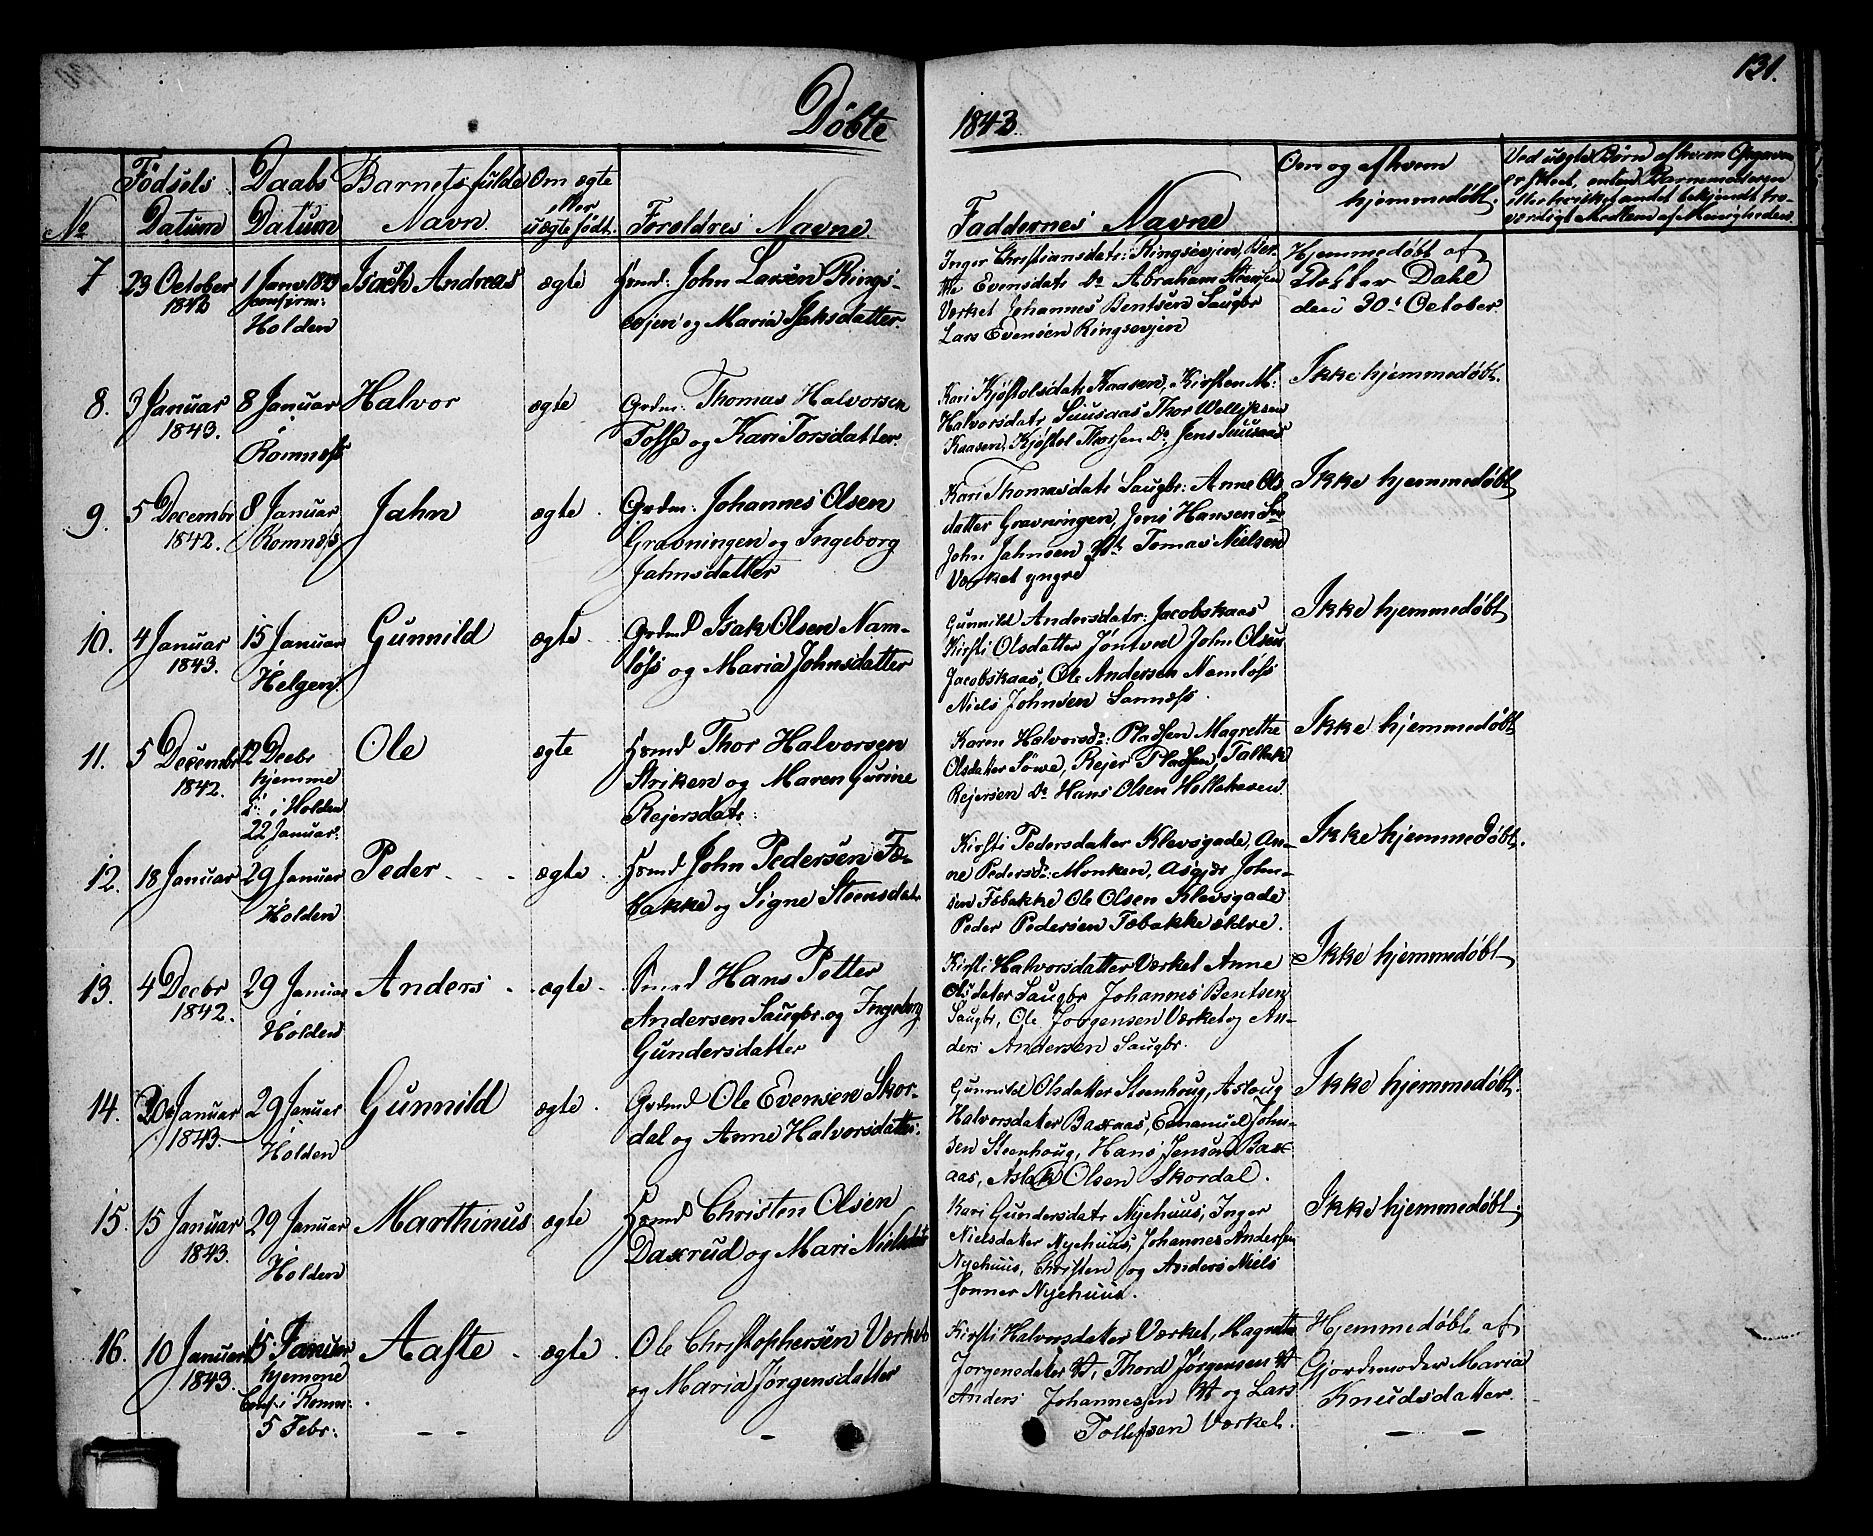 131.
Døbte 1843.
No
Fødsels Datum
Daabs Datum
Barnets fulde Navn.
Om ægte eller uægte født.
Foreldres Navne.
Faddernes Navne
Om og af hvem hjemmedøbt.
Ved uægte Børn af hvem Opgaven
er skeet, enten Barnmoderen
eller hvilket andet bekjendt tro-
værdigt Medlem af Menigheden.
7 23 October 1842
1 Janv 1843
Holden
Isach Andreas
ægte
Huusmd: John Larsen Rings-
evjen og Maria Isaksdatter.
Inger Christiansdatr: Ringsevjen, Ber-
the Evensdatr Do Abraham
Værket Johannes Bentsen Saugbr
Lars Evensen Ringsevjen
Hjemmedøbt af
Doktor Dahl
den 30te October.
8. 3 Januar 1843.
8 Januar
i
Romnæss
Halvor
ægte
Grdm: Thomas Halvorsen
Tofse og Kari Torsdatter.
Kari Kjøstolsdatr Kaasen, Kirsten M:
Halvorsdatr Suusaas Thor
Kaasen, Kjøstol Thorsen Do, Jens Suusaas
Ikke hjemmedøbt.
9. 5 Decembr 1842.
8 Januar
i Romnæss
Jahn
ægte.
Grdm: Johannes Olsen
Gravningen og Ingeborg
Jahnsdatter
Kari Thomasdatr Saugbr: Anne Ols-
datter Gravningen, Jens Hansen
John Jahnsen Tomas Nielsen
Værket yngre
Ikke hjemmedøbt
10. 4 Januar 1843.
15 Januar
i
Helgen
Gunnild
ægte.
Grdmd Isak Olsen Nam-
løss og Maria Johnsdatter
Gunnild Andersdatr: Jacobskaas
Kirsti Olsdatter Jøntved John Olsen
Jacobskaas, Ole Andersen Namløss
Niels Johnsen Sannæss.
Ikke hjemmedøbt
11. 5 Decembr 1842.
12 Decbr
hjemme
i Holden
22 Januar:
Ole
ægte
Huusmd Thor Halvorsen
Striken og Maren Gurine
Rejersdatr:
Karen Halvorsdr: Pladsen Magrethe
Olsdatter Sowe, Rejer Pladsen, Tallak
Rejersen Do Hans Olsen Hellekesen.
Ikke hjemmedøbt
12. 18 Januar
29 Januar
i
Holden
Peder
ægte.
Huusmd John Pedersen Fæ-
bakke og Signe Steensdatr
Kirsti Pedersdatter Klevsgade, An-
ne Pedersdr: Monken, Asgjær John-
sen Fæbakke Ole Olsen Klevsgade
Peder Pedersen Fæbakke ældre.
Ikke hjemmedøbt.
13. 4 Decbr 1842.
29 Januar
i
Holden
Anders
ægte
Hans Petter
Andersen Saugbr. og Ingeborg
Gundersdatter
Kirsti Halvorsdatter Værket Anne
Olsdater Saugbr Johannes Bentsen
Saugbr, Ole Jørgensen Værket og An-
ders Andersen Saugbr.
Ikke hjemmedøbt
14. 20 Januar 1843.
29 Januar
i
Holden
Gunnild
ægte.
Grdmd Ole Evensen Skor-
dal og Anne Halvorsdatter.
Gunnild Olsdatter Steenhoug, Aslaug
Halvorsdater Baxaas, Emanuel John-
sen Steenhoug, Hans Jensen Bax-
aas, Aslak Olsen Skordal.
Ikke hjemmedøbt.
15. 15 Januar 1843.
29 Januar
i
Holden
Marthinus
ægte
Huusmd Christen Olsen
Daxrud og Mari Nielsdatr
Kari Gundersdatr Nyehuus, Inger
Nielsdatter Nyehuus, Johannes Andersen
Nyehuus, Christen og Anders Niels
sønner Nyehuus.
Ikke hjemmedøbt.
16. 10 Januar 1843.
15 Januar
hjemme
Conf: i Romn:
5 Febr:
Aaste
ægte.
Ole Christophersen Værket
og Maria Jørgensdatter
Kirsti Halvorsdatter Værket, Magrethe
Jørgensdater Vt, Thord Jørgensen Vt
Anders Johannessen Vt og Lars
Tollefsen Værket.
Hjemmedøbt af
Gjordemoder Maria
Knudsdatter